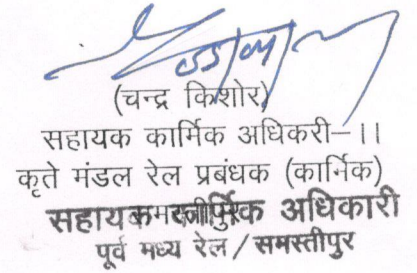 (चन्द्र किशोर)
सहायक कार्मिक अधिकरी–।।
कृते मंडल रेल प्रबंधक (कार्मिक)
सहायक कार्मिक अधिकारी
पूर्व मध्य रेल/समस्तीपुर